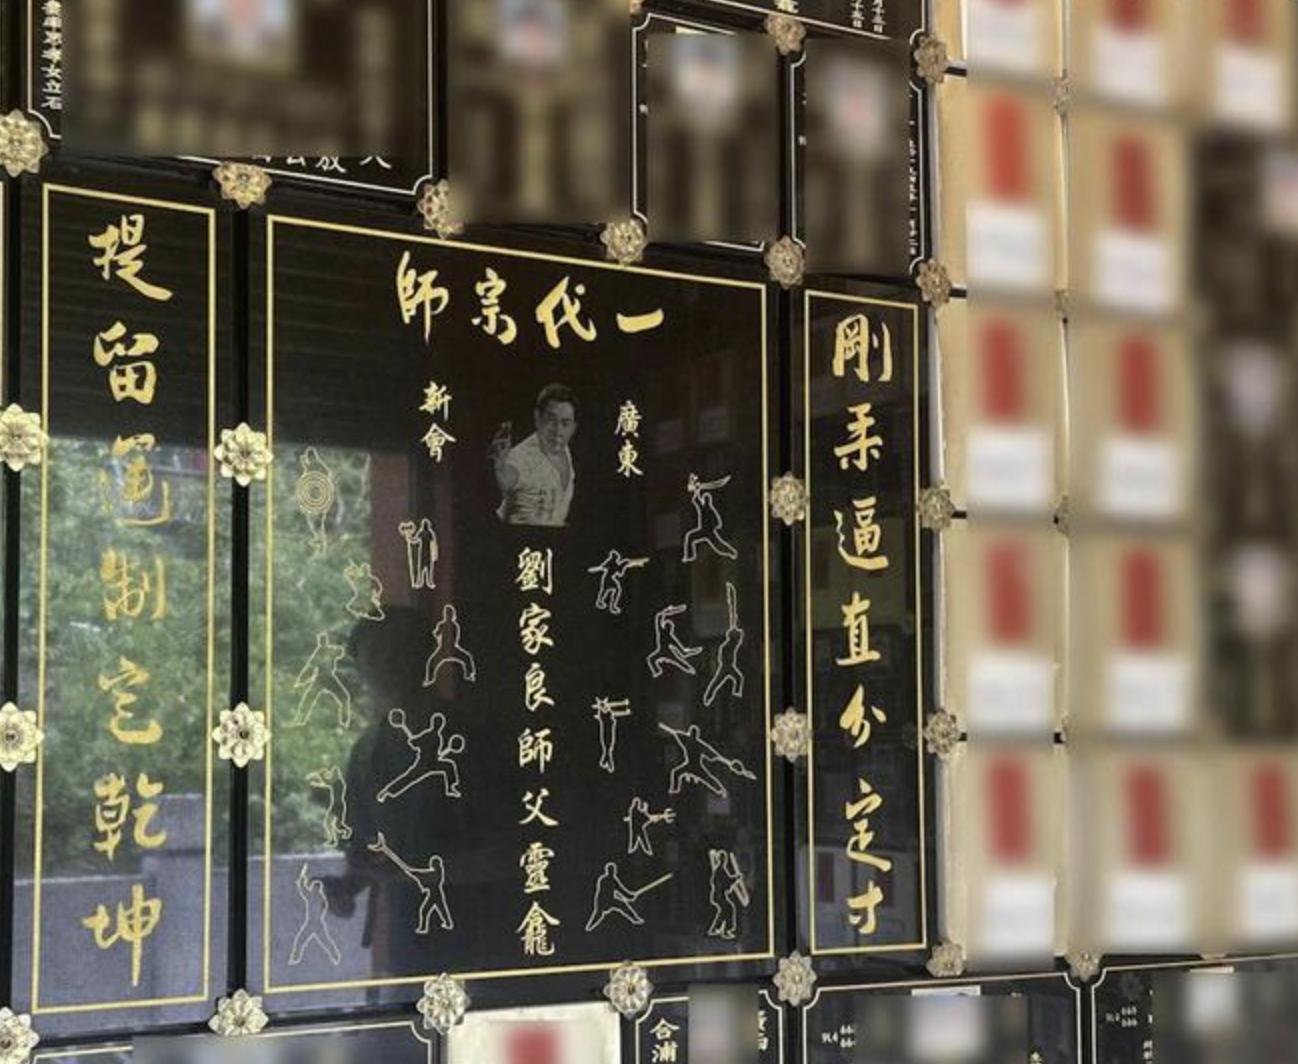 一代宗師
廣東
新會
劉家良師父靈龕
剛柔逼直分定寸
提留運制定乾坤
合浦